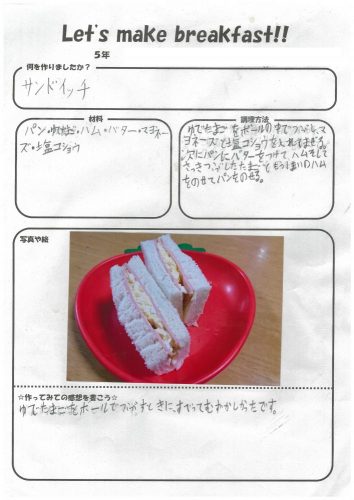 Let's make breakfast!!
5年
何を作りましたか?
サンドイッチ
材料
パン・ゆでたまご・ハム・バター・マヨネ
ーズ・塩コショウ
調理方法
ゆでたまごをボールの中でつぶし、マ
ヨネーズと塩コショウを入れてまぜる。
次にパンにバターをつけて ハムそして
さっきつぶしたたまごともう1まいのハム
をのせてパンをのせる。
写真や絵
☆作ってみての感想を書こう☆
ゆでたまごをボールでつぶすときに、すべってむずかしかったです。